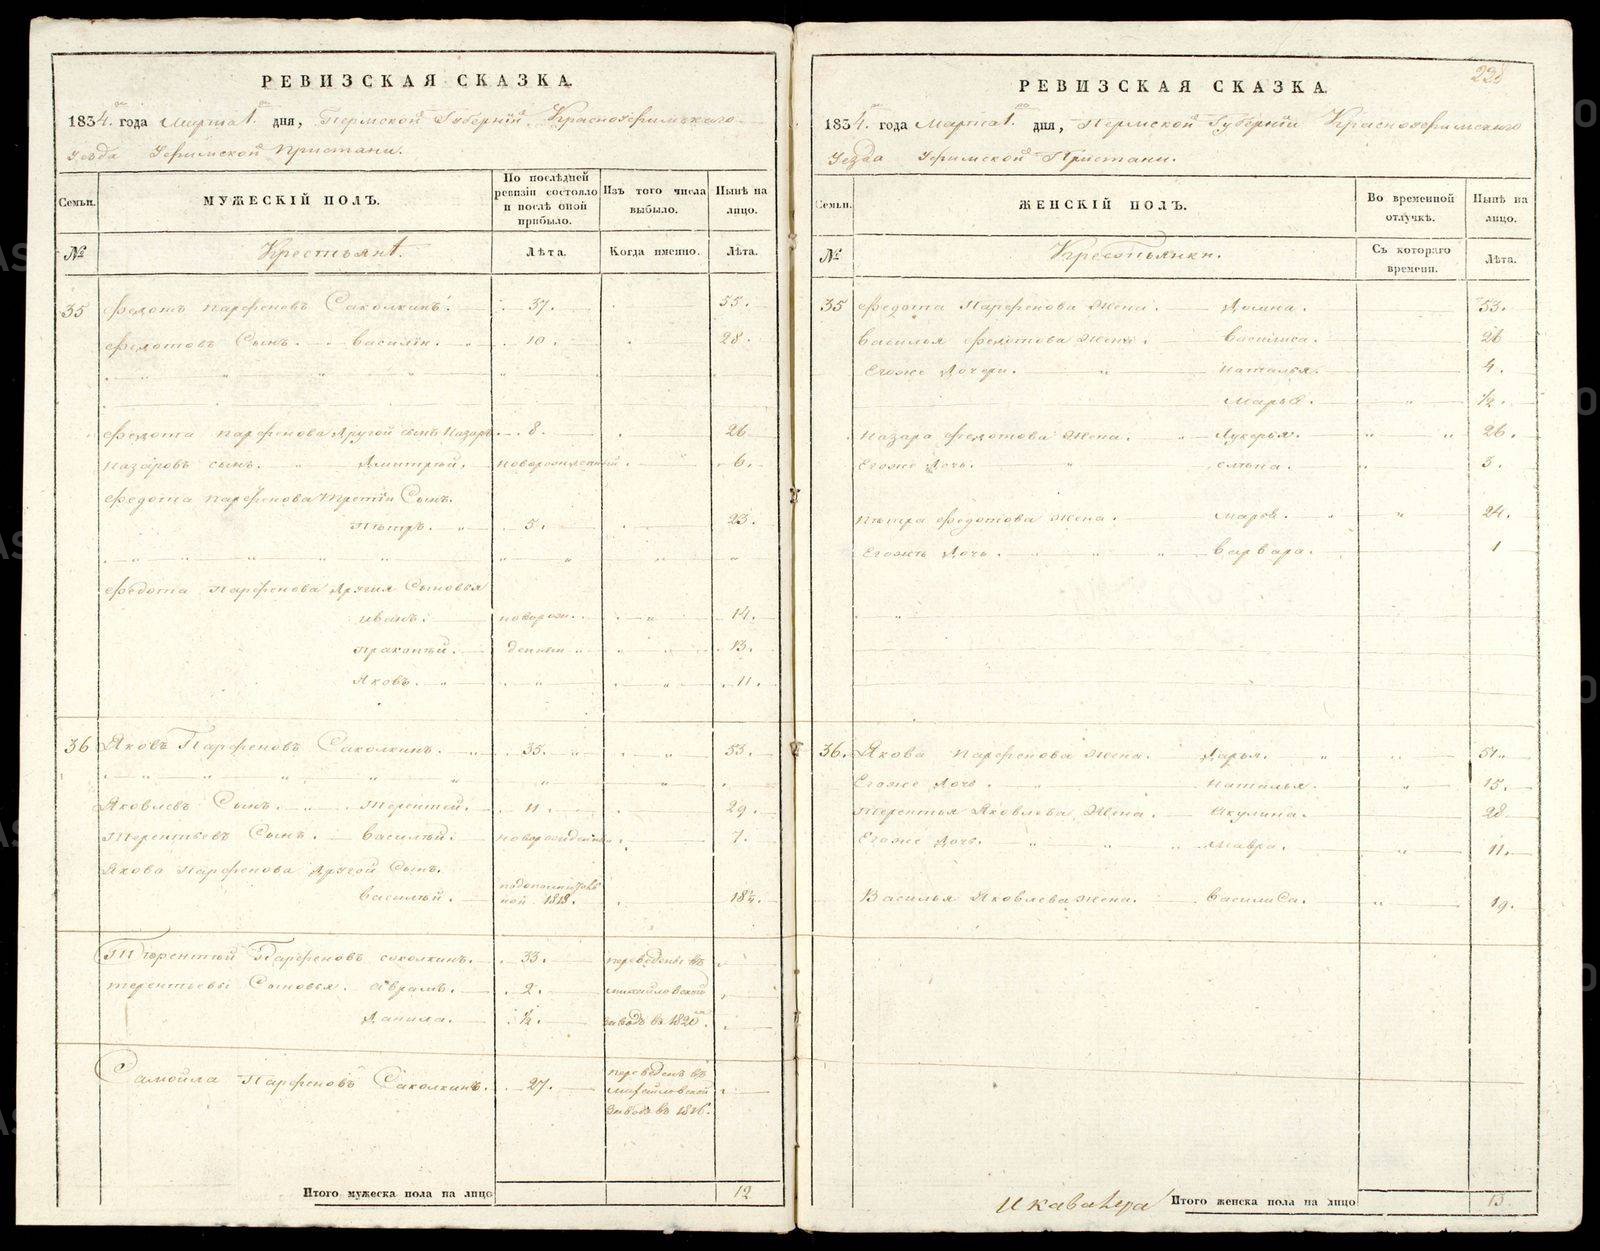 РЕВИЗСКАЯ СКАЗКА.
1834.го года Марта 1.го дня, Пермской Губернiи Красноуфимскаго
Уезда Уфимской Пристани.
Семьи.
МУЖЕСКIЙ ПОЛЪ.
По послѣдней ревизiи состояло и послѣ оной прибыло.
Изъ того числа выбыло.
Нынѣ на лицо.
№
Крестьянѣ.
Лѣта.
Когда именно.
Лѣта.
35 Федотъ Парфеновъ Саколкинъ. 37. 55.
Федотовъ Сынъ. Василiй. 10. 28.
Федота Парфенова Другой сынъ Назаръ. 8. 26
Назаровъ сынъ. Дмитрѣй. новорожденный. 6.
Федота Парфенова Третiй Сынъ.
Пѣтръ. 5. 23.
Федота Парфенова Другiя Сыновья
Иванъ. новорож. 14.
Пракопѣй. денныи 13.
Яковъ. 11.
36 Яковъ Парфеновъ Саколкинъ. 35. 53.
Яковлевъ Сынъ. Терентѣй. 11. 29.
Терентьевъ Сынъ. Василѣй. новорожденный. 7.
Якова Парфенова Другой Сынъ.
Василѣй. 1818. 18½.
Терентѣй Парфеновъ соколкинъ. 33. переведены въ
терентьевы Сыновья. Аврамъ. 2. михайловской
Данила. ½. заводъ въ 1820.
Самойла Парфеновъ Саколкинъ. 27. переведенъ въ
михайловской
заводъ въ 1816.
Итого мужеска пола на лицо 12
РЕВИЗСКАЯ СКАЗКА.
1834.го года Марта 1.го дня, Пермской Губернiи Красноуфимскаго
Уезда Уфимской Пристани.
Семьи.
ЖЕНСКIЙ ПОЛЪ.
Во временной отлучкѣ.
Нынѣ на лицо.
№
Крестьянки.
Съ котораго времени.
Лѣта.
35 Федота Парфенова Жена. Домна. 53.
Василья Федотова Жена. Василиса. 26
Егоже Дочери. Наталья. 4.
Марья. ½.
Назара Федотова Жена. Лукерья. 26.
Егоже Дочь. 3.
Пѣтра Федотова Жена. Марья. 24.
Егоже Дочь. Варвара. 1
36. Якова Парфенова Жена. Дарья. 51.
Егоже Дочь. Наталья. 15.
Терентья Яковлева Жена. Акулина. 28.
Егоже Дочь. Мавра. 11.
Василья Яковлева Жена. Василиса. 19.
И кавалера
Итого женска пола на лицо 13.